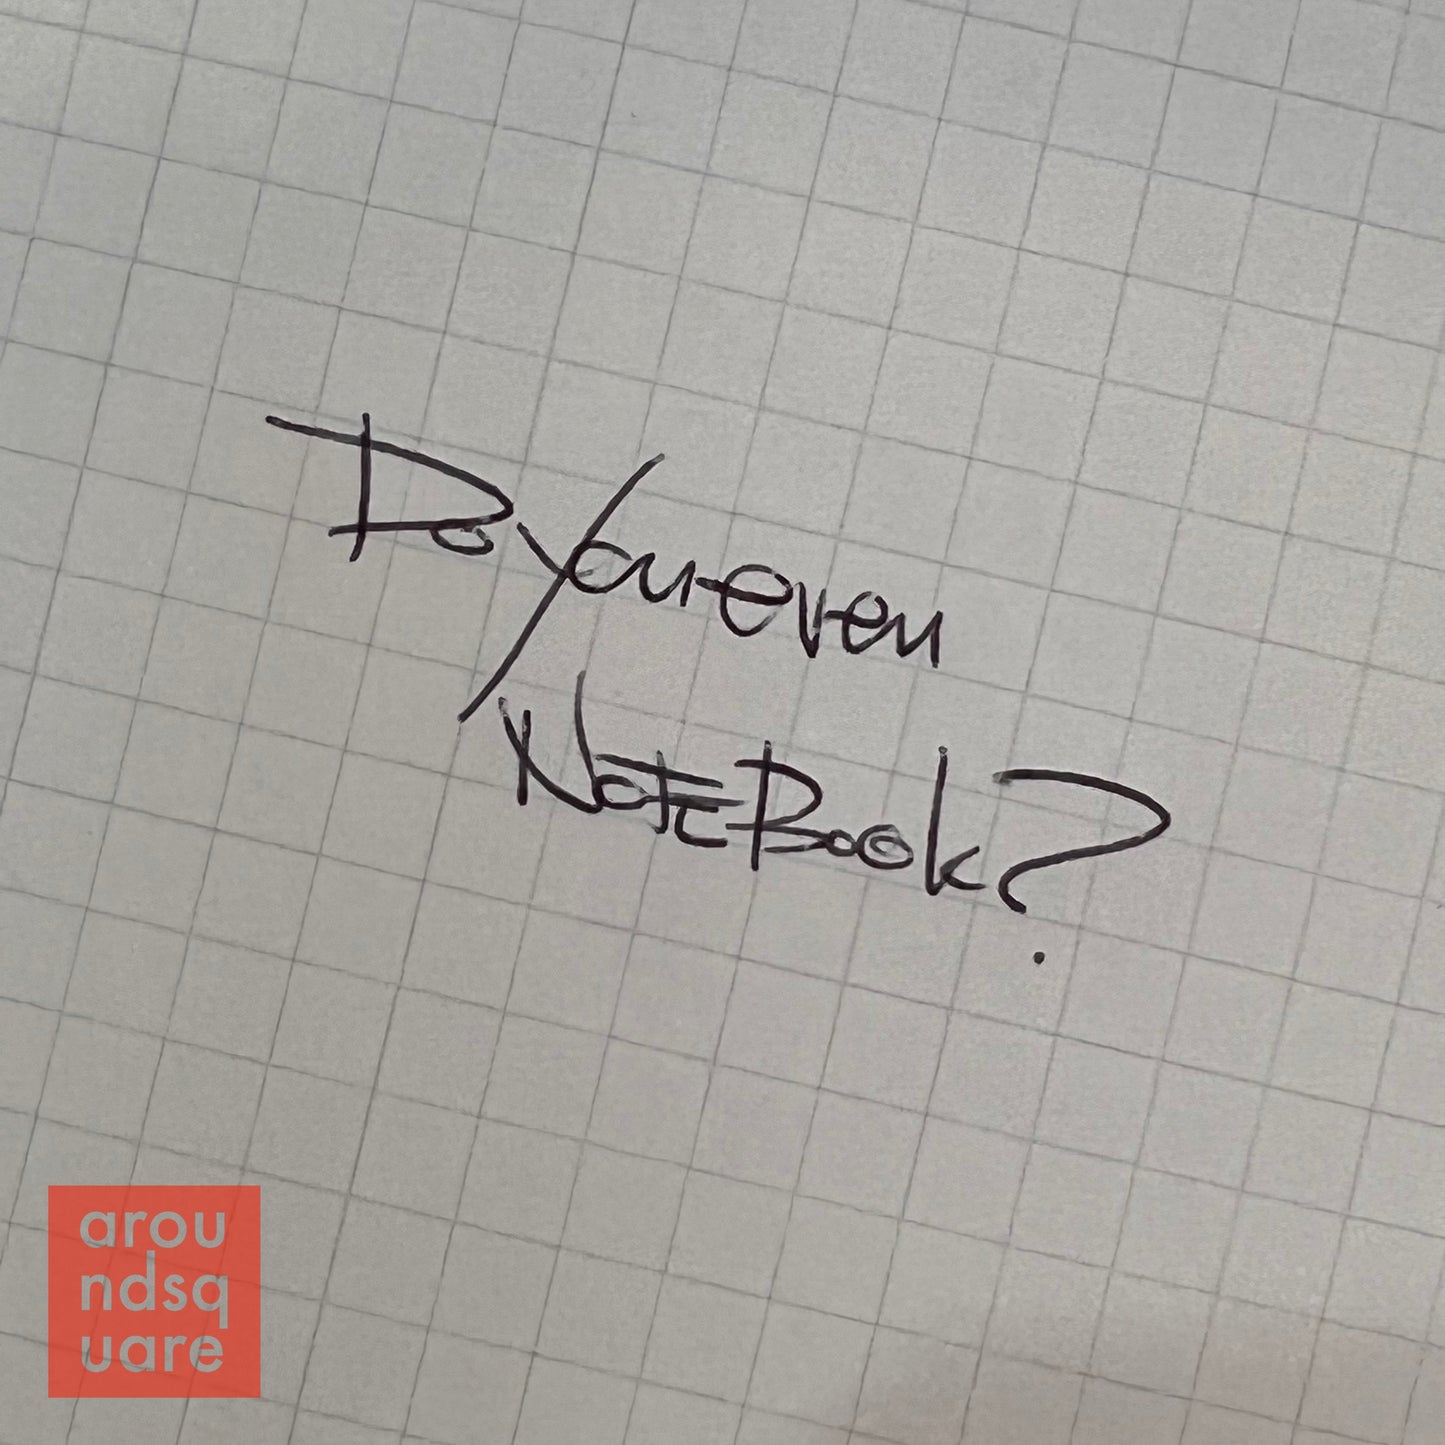 Do you even
NOTEBook?
arou
ndsq
uare